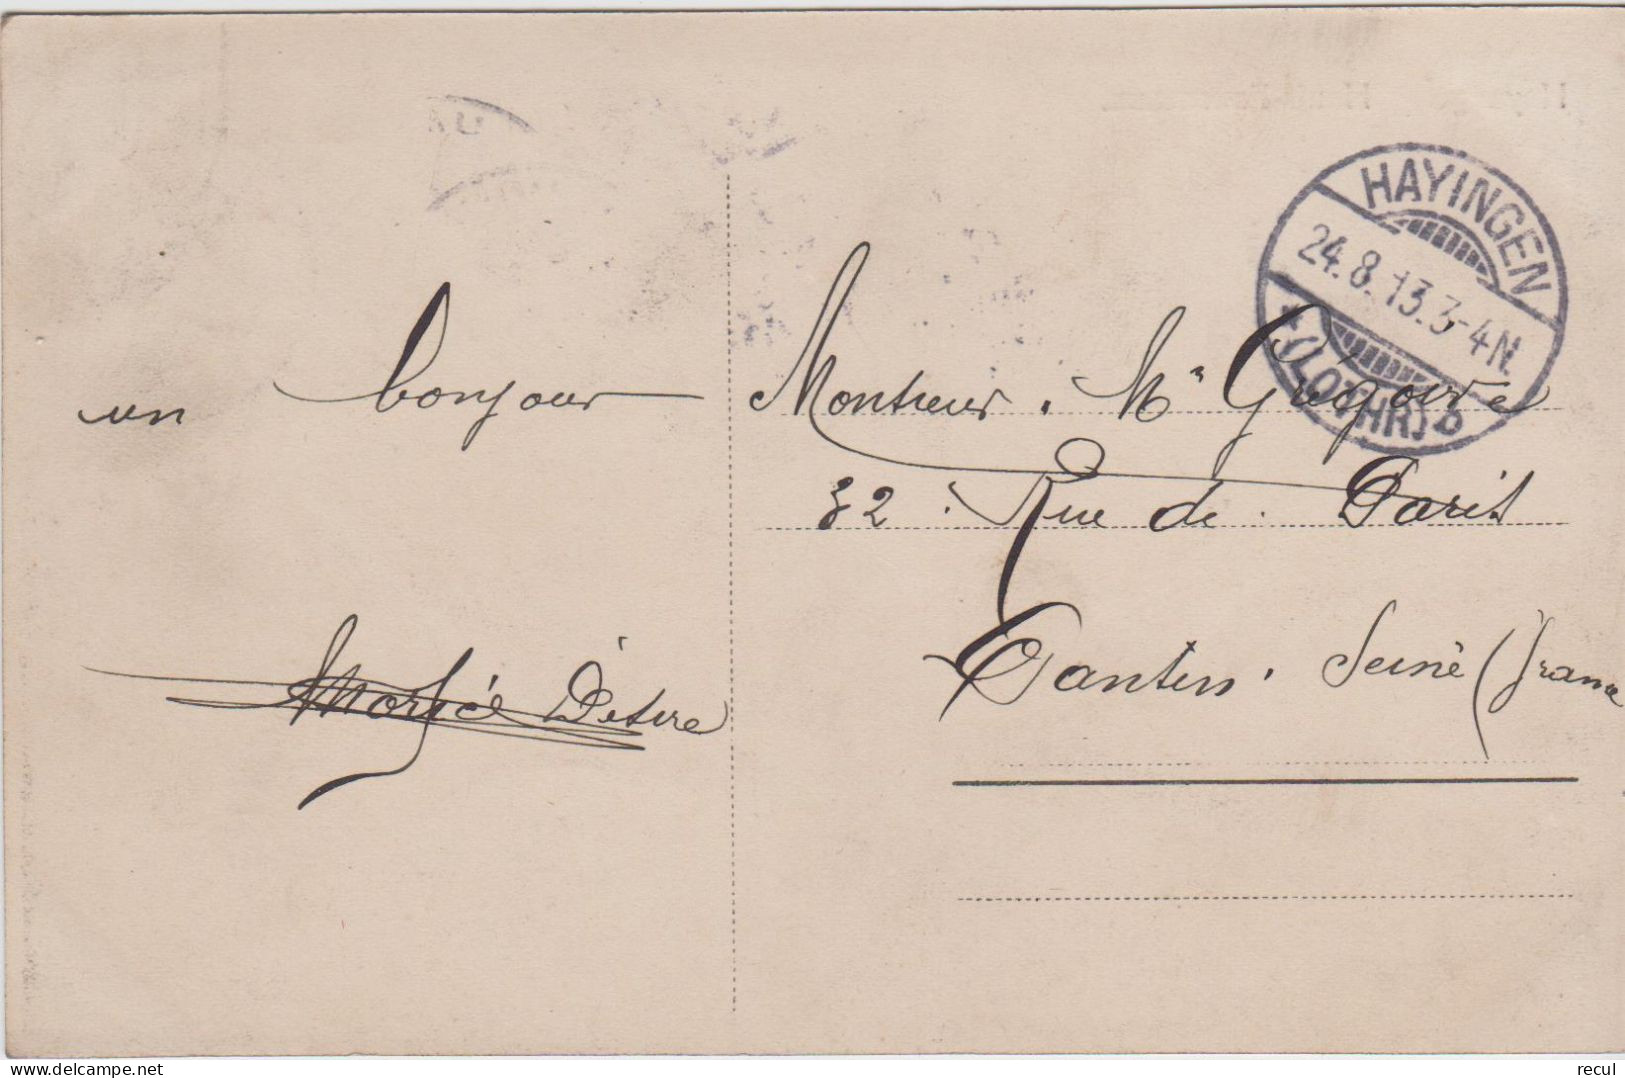 HAYINGEN
24.8.13.3-4N.
* (LOTHR) b
un bonjour
Monsieur. Mr Grégoire
32. Rue de. Paris
Pantin. Seine (France
Désiré
delcampe.net
recul